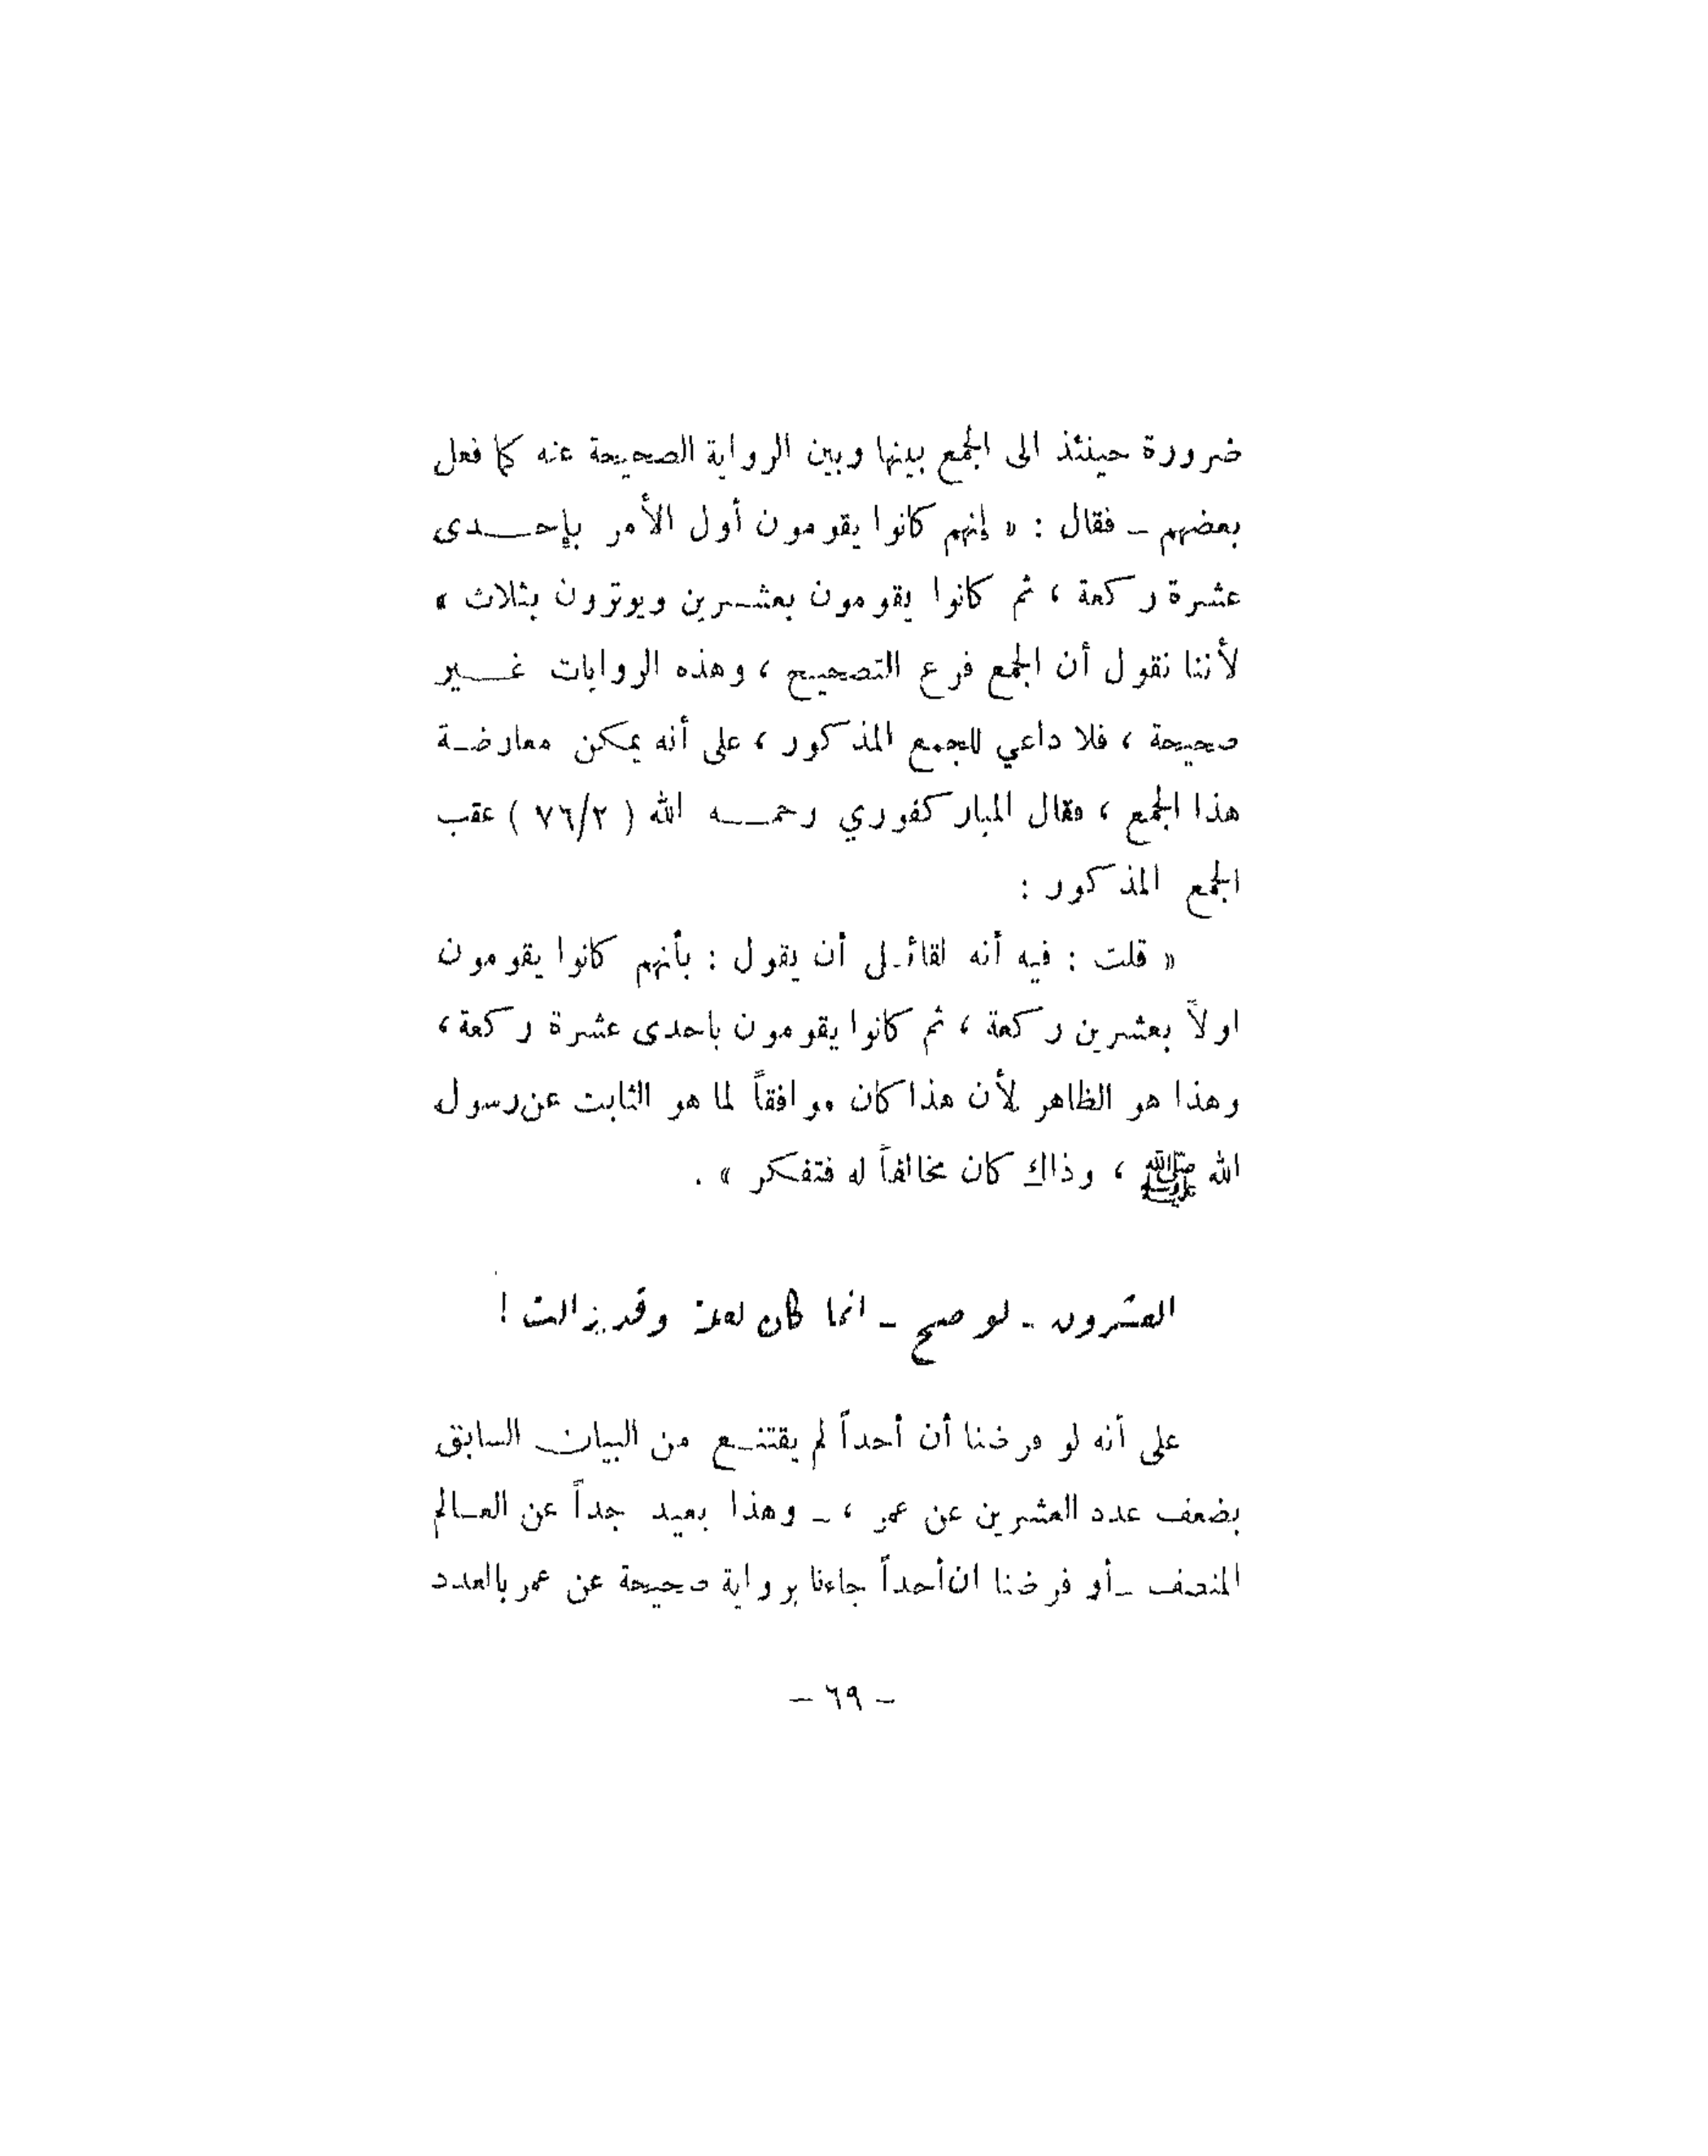 ضرورة حينئذ الى الجمع بينها وبين الرواية الصحيحة عنه كما فعل
بعضهم ــ فقال : « إنهم كانوا يقومون أول الأمر بإحدى
عشرة ركعة ، ثم كانوا يقومون بعشرين ويوترون بثلاث »
لأننا نقول أن الجمع فرع التصحيح ، وهذه الروايات غير
صحيحة ، فلا داعي للجمع المذكور ، على أنه يمكن معارضة
هذا الجمع ، فقال المباركفوري رحمه الله ( ٧٦/٢ ) عقب
الجمع المذكور :
« قلت : فيه أنه لقائل أن يقول : بأنهم كانوا يقومون
اولاً بعشرين ركعة ، ثم كانوا يقومون باحدى عشرة ركعة ،
وهذا هو الظاهر لأن هذا كان موافقاً لما هو الثابت عن رسول
الله ﷺ ، وذاك كان مخالفاً له فتفكر » .
العشرون ـ لو صح ـ انما كان لعلة وقد زالت !
على أنه لو فرضنا أن أحداً لم يقتنع من البيان السابق
بضعف عدد العشرين عن عمر ، ـ وهذا بعيد جداً عن العالم
المنصف ـ أو فرضنا ان أحداً جاءنا برواية صحيحة عن عمر بالعدد
– ٦٩ –